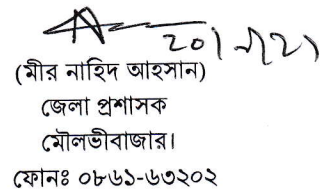 (মীর নাহিদ আহসান)
জেলা প্রশাসক
মৌলভীবাজার।
ফোনঃ ০৮৬১-৬৩২০২